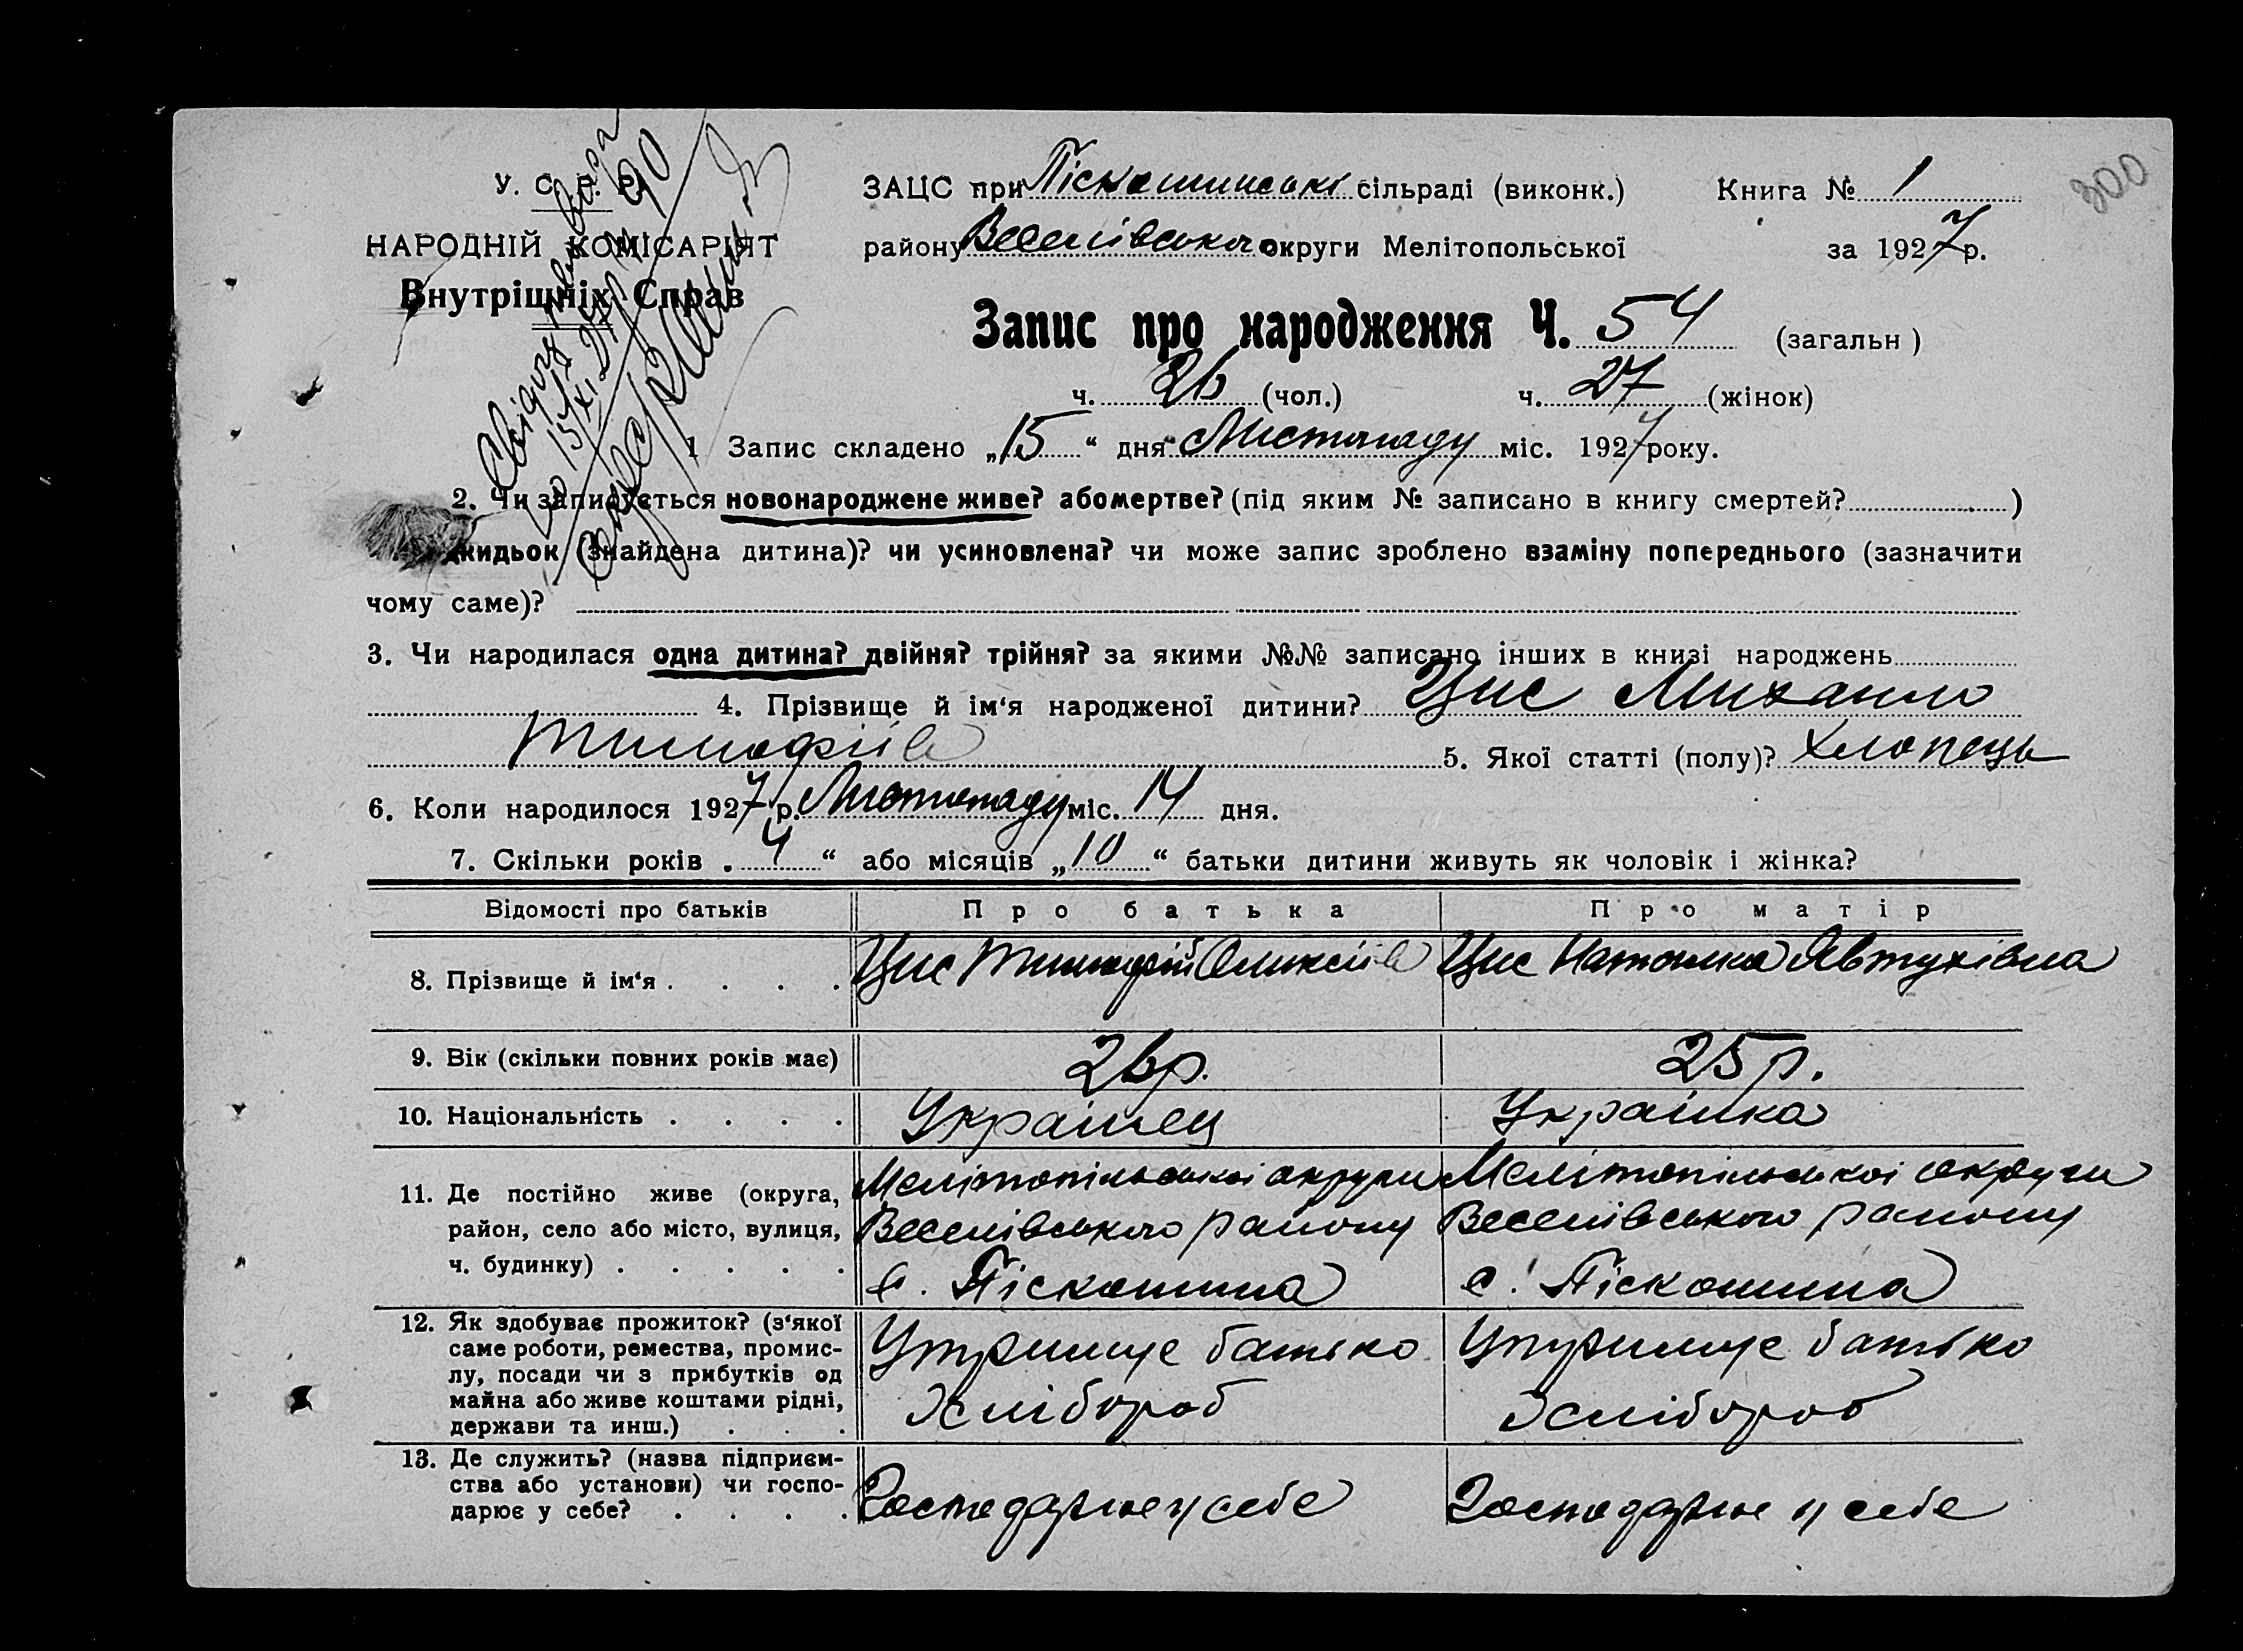 300
У. С. Р. Р. ЗАЦС при Піскошинські сільраді (виконк.) Книга № 1
НАРОДНІЙ КОМІСАРІЯТ району Веселівського округи Мелітопольської за 1927 р.
Внутрішніх Справ
Запис про народження Ч. 54 (загальн)
ч. 26 (чол.) ч. 27 (жінок)
1 Запис складено „15“ дня Листопаду міс. 1927 року.
2. Чи записується новонароджене живе? або мертве? (під яким № записано в книгу смертей? )
кидьок (знайдена дитина)? чи усиновлена? чи може запис зроблено взаміну попереднього (зазначити
чому саме)?
3. Чи народилася одна дитина? двійня? трійня? за якими №№ записано інших в книзі народжень
4. Прізвище й ім‘я народженої дитини? Цис Михайло
Тимофіїв 5. Якої статті (полу)? Хлопець
6. Коли народилося 1927 р. Листопаду міс. 14 дня.
7. Скільки років „ 4 “ або місяців „ 10 “ батьки дитини живуть як чоловік і жінка?
Відомості про батьків Про батька Про матір
8. Прізвище й ім‘я . . . . Цис Тимофій Оликсіїв Цис Наталка Явтухівна
9. Вік (скільки повних років має) 26 р. 25 р.
10. Національність . . . . Українец Українка
11. Де постійно живе (округа, Мелітопільської округи Мелітопільської округи
район, село або місто, вулиця, Веселівського району Веселівського району
ч. будинку) . . . . . с. Піскошина с. Піскошина
12. Як здобуває прожиток? (з‘якої
саме роботи, ремества, промис- Утримує батько Утримує батько
лу, посади чи з прибутків од
майна або живе коштами рідні, Хлібороб Хлібороб
держави та инш.) . . .
13. Де служить? (назва підприєм-
ства або установи) чи госпо- Господарює у себе Господарює у себе
дарює у себе? . . . .